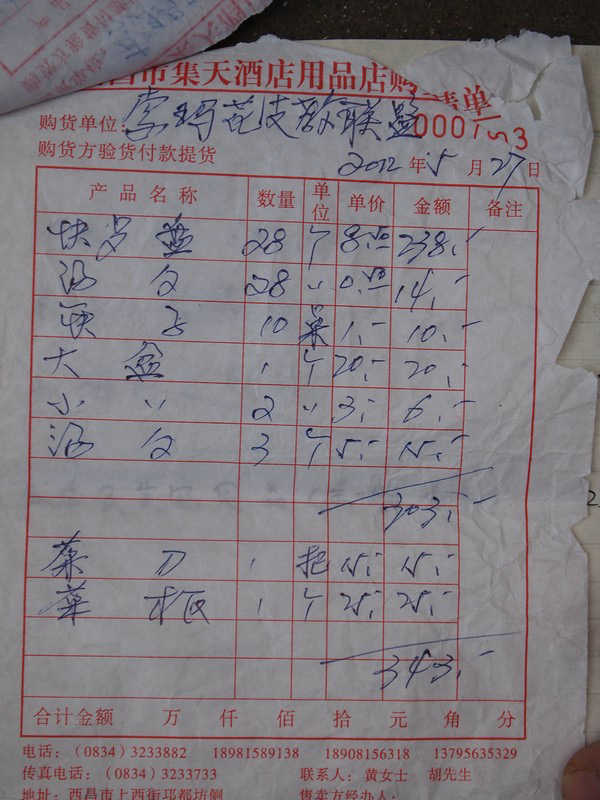 昌市集天酒店用品店购 清单
购货单位: 索玛花支教联盟 0001533
购货方验货付款提货 2012 年 5 月 27 日
产品名称 数量 单位 单价 金额 备注
快歺盘 28 个 8.50 238.-
汤勺 28 〃 0.50 14.-
筷子 10 1.- 10.-
大盆 1 个 20.- 20.-
小〃 2 〃 3.- 6.-
汤勺 3 个 5.- 15.-
303.-
菜刀 1 把 15.- 15.-
菜板 1 个 25.- 25.-
343.-
合计金额 万 仟 佰 拾 元 角 分
电话:(0834)3233882 18981589138 18908156318 13795635329
传真电话:(0834)3233733 联系人: 黄女士 胡先生
地址: 西昌市上西街邛都坊侧 售卖方经办人: